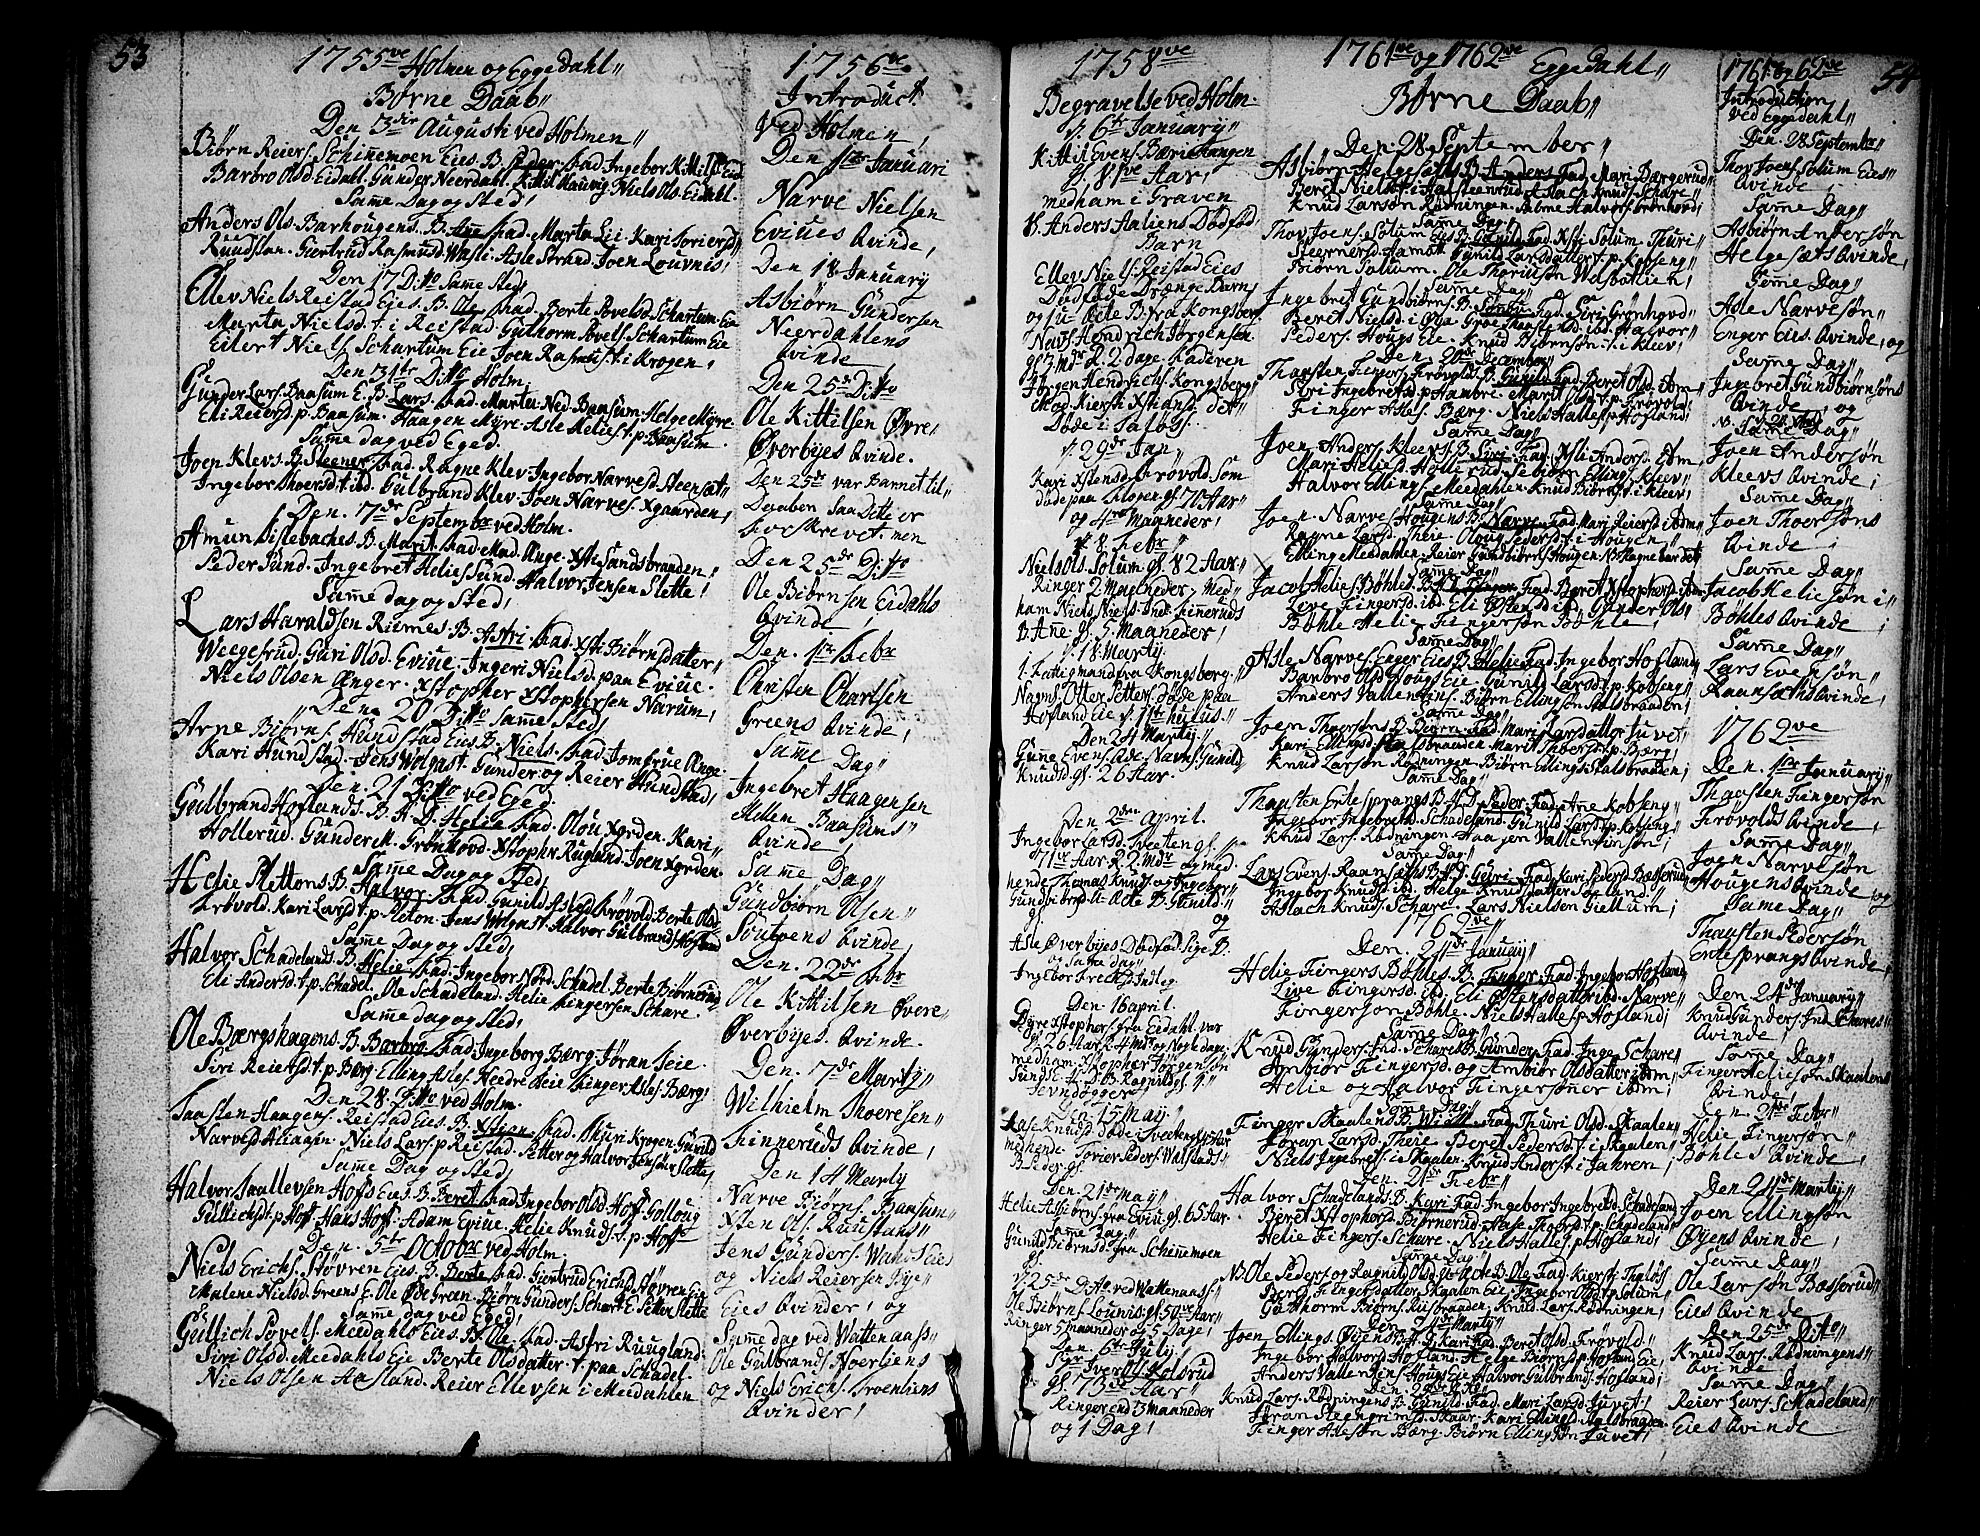 53
1755ve Holmen og Eggedahl
Børne Daab
Den 3die Augusti ved Holmen
Biørn Reiers. Schinnemoen Eies. B. Peder. Fad. Ingebor Kittilsd. Eid
Barbro Olsd. Eidahl. Gunder Neerdahl. Kittil Hauvig. Niels Ols. Eidahl.
Samme Dag og Sted
Anders Ols. Barhougens. B. Ane. Fad. Marta Lie. Kari Toriersd
Ruudstan. Giertrud Rasmusd. Wasli. Asle Strand. Joen Louvnis
Den 17 Ditto Samme Sted
Ellev Niels. Reistad Eies. B. Ole. Fad. Berte Povelsd. Schartum Eie
Marta Nielsd. t. i Reistad. Guthorm Povels. Schartum Eie
Eilert Niels. Schartum Eie. Joen Rasmus. t. i Krogen
Den 31te Ditto Holm
Gunder Lars. Baasum E. B. Lars. Fad. Marta Ned. Baasum. Helge Myre
Eli Reiersd. p. Baasum. Haagen Myre. Asle Helies. t. p. Baasum
Samme dag ved Eged.
Joen Klevs. B. Steener. Fad. Ragne Klev. Ingebor Narvesd. Steensæt
Ingebor Thoersd. t. ibd. Gulbrand Klev. Joen Narves. Xgaarden
Den. 7de Septembr ved Holm.
Amun Dislebaches. B. Marit. Fad. Mad. Ange. Xsti Sandsbraaden
Peder Sund. Ingebret Helies. Sund. Halvor Jensen Slette
Samme dag og Sted
Lars Haraldsen Rismes. B. Astri. Fad. Xsti Biørnsdatter
Weegefrud. Guri Olsd. Eviue. Ingeri Nielsd. paa Eviue.
Niels Olsen Anger. Xstopher Xstophersen Narum
Den. 20 Ditto Samme Sted
Arne Biørns. Hundstad Eies. B. Niels. Fad. Jomfrue Ange
Kari Hundstad. Jens Wolgast. Gunder og Reier Hundstad
Den. 21 Ditto ved Eged.
Gulbrand Hoflands. B. H. D. Helie. Fad. Olou Xgrden. Kari
Hollerud. Gunder M. Grønhovd. Xstophr Ruglund. Joen Xgrden
Samme Dag og Sted
Helie Slettons. B. Halvor. Fad. Gunild Flslod Frøvold. Berte Olsd
Frøvold. Kari Larsd. t. p. Sleton. Jens Wolgast. Halvor Gulbrands. Hofland
Samme Dag og Sted
Halvor Schadelands. B. Helie. Fad. Ingebor Nørd. Schadel. Berte Biørnerud
Eli Andersd. t. p. Schadel. Ole Schadeland. Helie Fingersen Schare
Samme dag og Sted
Ole Bærgshagens. B. Barbro. Fad. Ingeborg Bærg. Jøran Seie.
Siri Reiersd. t. p. Bærg. Elling Asles. Needre Seie. Finger Asles. Bærg
Den 28. Ditto ved Holm.
Taasten Haagens. Reistad Eies. B. Xstian. Fad. Thuri Krogen. Gunild
Narvesd. Hiagin. Niels Lars. p. Reistad. Petter og Halvor Jensøner Slette
Samme Dag og Sted
Halvor Taallevsen Hoffs Eies. B. Beret. Fad. Ingebor Olsd. Hoff. Gollaug
Gullichsd. t. p. Hoff. Hans Hoff. Adam Eviue. Helie Knuds. t. p. Hoff
Den. 5te Octobr ved Holm.
Niels Erichs. Støvren Eies. B. Berte. Fad. Giertrud Erichsd. Støvren Eie
Malene Nielsd. Greens E. Ole Øde Green. Biørn Gunders. Schart E. Petter Slette
Samme dag ved Eged
Gullich Povels. Meedahls Eies. B. Ole. Fad. Astri Ruugland
Siri Olsd. Meedahls Eie. Berte Olsdatter. t. paa Schadel.
Niels Olsen Aasland. Reier Ellevsen i Meedahlen
1756ve
Introduct.
Ved Holmen
Den 1ste Januari
Narve Nielsen
Eviues Qvinde
Den 18 Januarij
Asbiørn Gundersen
Neerdahlens
Qvinde
Den 25de Ditto
Ole Kittilsen Øvre
Øverbyes Qvinde.
Den 25de var Barnet til
Daaben Saa Dette er
Forskrevet. men
Den 25de Ditto
Ole Biørnsen Eidahls
Qvinde
Den. 1ste Febr
Christen Charlsen
Greens Qvinde
Samme Dag
Ingebret Haagensen
Mellem Baasums
Qvinde
Samme Dag
Gundbiørn Olsen
Soutvens Qvinde
Den. 22de Febr
Ole Kittilsen Øvere
Øverbyes Qvinde.
Den. 7de Martij
Wilhielm Thoeresen
Finneruds Qvinde
Den 14 Martij
Narve Biørns. Baasum
Xsten Ols. Ruustans
Jens Gunders. Wahos Eies
og Niels Reiersen Jye
Eies Qvinder og
Samme dag ved Wattenaass
Ole Gulbrands. Noerliens
og Niels Erichs. Troenliens
Qvinder
1758ve
Begravelse ved Holm.
d. 6te Januarij
Kittil Evens. Bæristangen
gl. 81ve Aar
med ham i Graven
B. Anders Aaliens Dødfød
Barn
Ellev Niels. Reistad Eies
Dødføde Drænge Barn
og fu Ægte B. fra Kongsberg
Navn. Hendrich Jørgensen
gl. 7 Mdr. & 2 dage. Faderen
Jørgen Hendrichs. Kongsberg
Mod. Kiersti Xstians. det
Døde i Saløs.
d. 29de Jan
Kari Xstensd. Frøvold som
Døde paa Lilopen gl. 70 Aar
og 4re Maaneder
d. 8 Febr
Niels Ols. Solum gl. 82 Aar
Ringer 2 Maaneder. Med
ham Niels Niels. Ind. Finneruds
B. Ane. gl. 5. Maaneder
d. 18 Martij
1. Fattigmand fra Kongsberg.
Nagns. Otter Petters. Døde paa
Hofland Eie
Den 24 Martij
Gunne Evens. Ade. Navn. Gunild
Knudsd. gl. 26 Aar.
Den 2den april.
Ingebor Larsd. Tveeten gl.
71 Aar & 2 Mdr. og med
hende Thomas Knuds. og Ingebor
Gundbiørnsd. U Ægte B. Gunild
gl. og
Asle Øverbyes Dødfød Pige B.
og samme dag
Ingebor Frechsd. Indleg.
Den. 16 april.
Dyre Xstophers. fra Eidahl. var
gl. 26 Aar & 4 Mdr. og Nogle dage.
med ham. Xstopher Jørgensøn
Sund E. H. D. B. Ragnild gl. 9.
Jevndøgger
Den. 15 Maij
Aase Knudsd. Døde i Tveetens gl. Aar
med hende. Torier Peders. Walstads
B. Peder gl.
Den. 21de Maij
Helie Asbiørns. fra Eviu gl. 65 Aar.
Samme Dag
Gunild Biørnsd. fra Schinnemoen
gl.
d. 25de Ditto ved Wattenaas.
Ole Biørns. Louvnis. gl. 50ve Aar
Ringer 5 maaneder og 5 Dage
Den. 6te Julij
Sgr. Iver Ols. Kolsrud
gl. 73die Aar
Ringer end 3 Maaneder
og 1 Dag
1761ve og 1762ve Eggedahl
Børne Daab
Den. 28 September
Asbiørn Helgesæths B. Anders Fad. Mari Bærgerud
Beret Niels. t. i Halsteenrud. Aslach Knuds. Schare
Knud Larsøn Rødningen. Halvor Grønhovd
Samme Dag
Thov Joens. Solum Eies B. Gunild. Fad. Xsti Solum. Thuri
Steenersd. Hamre. Gunild Larsdatter t. p. Kobseng
Biørn Solum. Ole Thoriusøn Walsbalien
Samme Dag
Ingebret Gundbiørns. B. Fad. Siri Grønhovd
Beret Nielsd. i Øya. Groe Thoestensd. ibd. Halvor
Peders. Hougs Eie. Knud Biørnsøn. t. i Kleev
Den. 20de December
Thaasten Fingers. Frøvolds. B. Gunild Fad. Beret Olsd. ibdm
Siri Ingebretsd. p. Haabre. Marit t. p. Frøvold
Finger Asles. Bærg. Niels Halles. p. Hofland
Samme Dag
Joen Anders. Kleevs. B. Siri. Fad. Xsti Andersd. ibdm
Mari Helies. Hollerud. Sebiørn Elling. Kleev
Halvor Ellings. Meedahlen. Knud Biørns. t. i Kleev
Samme Dag
Joen. Narves. Hougens B. Narve. Fad. Mari Reiersd. ibdm
Ragne Larsd. Theie. Oloug Pedersd. t. i Hougen
Elling Meedahlen. Reier Gundbiørns. Hougen. NB. Ragne bar det
Samme Dag
Jacob Helies. Bøhles. B. H. D. Fad. Beret Xstophersd. ibdm
Live Fingersd. ibd. Eli Østensd. ibd. Gunder Ols.
Bøhle Helie Fingersøn Bøhle
Samme Dag
Asle Narves. Enger Eies B. Helie. Fad. Ingebor Hofland
Barbro Olsd. Hougs Eie. Gunild Larsd. t. p. Kobseng
Anders Vallentins. Biørn Ellingsøn Aalsbraaden
Samme Dag
Joen Thoersøns. B. Biørn. Fad. Mari Larsdatter Juvet
Kari Ellingsd. Aalsbraaden Marit Thoersd. t. p. Bærg
Knud Larsøn Rødningen. Biørn Ellings. Aalsbraaden
Samme Dag
Thaasten Ertesprangs B. H. D. Peder. Fad. Ane Kobseng
Ingebor Ingebretsd. Schadeland. Gunild Larsd. t. p. Kobseng
Knud Lars. Rødningen. Haagen Vallentinsøn
Samme Dag
Lars Evens. Raansæths B. H. D. Guri. Fad. Kari Pedersd. Basserud
Ingebor Knudsd. ibd. Helge Knudsdatter Søeland.
Aslach Knuds. Schare. Lars Nielsen Giellum
1762ve
Den. 24de Januarij
Helie Fingers Bøhles. B. Finger. Fad. Ingebor Hofland
Live Fingersd. ibd. Eli Østensdatter ibd. Narve
Fingersøn Bøhle. Niels Halles. p. Hofland
Samme Dag
Knud Gunders. Ind. Schares B. Gunder. Fad. Inge Schare
Ambior Fingersd. og Ambior Olsdatter ibdm
Helie og Halvor Fingersøner ibdm
Samme Dag
Finger Skaalens B. Wilse. Fad. Thuri Olsd. Skaalen
Jøran Larsd. Theie. Beret Pedersd. t. i Skaalen
Niels Ingebrets. i Skaalen. Knud Anders. t. i Jahren
Den. 21de Febr
Halvor Schadelands. B. Kari Fad. Ingebor Ingebretsd. Schadeland
Beret Xstophersd. Biørnerud. Aase Thoersd. t. p. Schadeland
Helie Fingers. Schare. Niels Halles. p. Hofland
Samme Dag
NB. Ole Peders. og Ragnil Olsd. U Ægte B. Ole. Fad. Kiersti Thaløss
Bered Fingersdatter Skaalen Eie. Ingebor Olsd. t. p. Solum
Gutthorm Biørns. Riisbraaden. Knud Lars. Rødningen
Den. 24de Martij
Joen Ellings. Øyens B. H. D. Kari. Fad. Beret Olsd. Frøvold
Ingebor Halvorsd. Hofland. Helge Biørns. p. Hofland Eie
Anders Vallentens. Hougs Eie. Halvor Gulbrands. Hofland
Den. 25de Ditto
Knud Lars. Rødningens B. Gunild. Fad. Mari Larsd. Juvet
Jøran Steengrimsd. Skaar. Kari Ellingsd. Aalsbraaden.
Finger Aslesøn Bærg. Biørn Ellingsøn Juvet
1761 og 62ve 54
Introduction
ved Eggedahl
Den. 28 Septembr
Thov Joens. Solum Eies
Qvinde
Samme Dag
Asbiørn Andersøn
Helgesæts Qvinde
Samme Dag
Asle Narvesøn
Enger Eies. Qvinde, og
Samme Dag
Ingebret Gundbiørnsøns
Qvinde og
Samme Dag
Joen Andersøn
Kleevs Qvinde
Samme Dag
Joen Thoersøns
Qvinde
Samme Dag
Jacob Heliesøn
Bøhles Qvinde
Samme Dag
Lars Evensøn
Raansæths Qvinde
1762ve
Den. 1ste Januarij
Thaasten Fingersøn
Frøvolds Qvinde
Samme Dag
Joen Narvesøn
Hougens Qvinde og
Samme Dag
Thaasten Pedersøn
Ertesprangs Qvinde
Den 24de Januarij
Knud Gunders. Ind. Schares
Qvinde
Samme Dag
Finger Heliesøn Skaalens
Qvinde
Den. 21de Febr
Helie Fingersøn
Bøhles Qvinde
Den 24de Martij
Joen Ellingsøn
Øyens Qvinde
Samme Dag
Ole Larsøn Basserud
Eies Qvinde
Den 25de Ditto
Knud Lars. Rødningens
Qvinde
Samme Dag
Reier Lars. Schadeland
Eies Qvinde